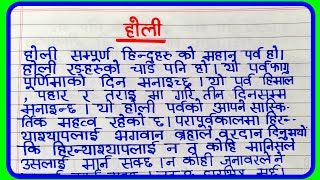 होली
होली सम्पूर्ण हिन्दुहरु को महान पर्व हो।
होली रङहरुको चाड पनि हो। यो पर्व फागु
पूर्णिमाको दिन मनाइन्छ। यो पर्व हिमाल
, पहार र तराई मा गरि तीन दिनसम्म
मनाइन्छ। यो होली पर्वको आफ्नै सांस्कृ-
तिक महत्व रहेको छ। परापूर्वकालमा हिर-
न्याश्यापलाई भगवान ब्रह्माले वरदान दिनुभयो
कि हिरन्याश्यापलाई न त कोहि मानिसले
उसलाई मार्न सक्छ। न कोही जनावरले न